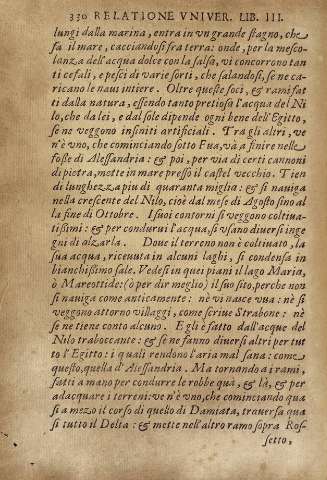 330 RELATIONE VNIVER. LIB. III.
lungi dalla marina, entra in vn grande stagno, che
fa il mare, cacciandosi fra terra: onde, per la mesco-
lanza dell'acqua dolce con la salsa, vi concorrono tan
ti cefali, e pesci di varie sorti, che salandosi, se ne ca-
ricano le naui intiere. Oltre queste foci, & rami fat
ti dalla natura, essendo tanto pretiosa l'acqua del Ni
lo, che da lei, e dal sole dipende ogni bene dell'Egitto,
se ne veggono infiniti artificiali. Tra gli altri, ve
n'è vno, che cominciando sotto Fua, và a finire nelle
fosse di Alessandria: & poi, per via di certi cannoni
di pietra, mette in mare presso il castel vecchio. Tien
di lunghezza piu di quaranta miglia: & si nauiga
nella crescente del Nilo, cioè dal mese di Agosto sino al
la fine di Ottobre. I suoi contorni si veggono coltiua-
tissimi: & per condurui l'acqua, si vsano diuersi inge
gni di alzarla. Doue il terreno non è coltiuato, la
sua acqua, riceuuta in alcuni laghi, si condensa in
bianchissimo sale. Vedesi in quei piani il lago Maria,
ò Mareottide: (ò per dir meglio) il suo sito, perche non
si nauiga come anticamente: nè vi nasce vua: nè si
veggono attorno villaggi, come scriue Strabone: nè
se ne tiene conto alcuno. Egli è fatto dall'acque del
Nilo traboccante: & se ne fanno diuersi altri per tut
to l'Egitto: i quali rendono l'aria mal sana: come
questo, quella d'Alessandria. Ma tornando a i rami,
fatti a mano per condurre le robbe quà, & là, & per
adacquare i terreni: ve n'è vno, che cominciando qua
si a mezo il corso di quello di Damiata, trauersa qua
si tutto il Delta: & mette nell'altro ramo sopra Ros-
setto,